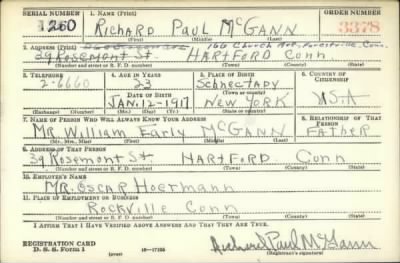 SERIAL NUMBER 1. NAME (Print) ORDER NUMBER
1260 RICHARD PAUL McGANN 3378
(First) (Middle) (Last)
2. ADDRESS (Print) 160 Church Ave. Forestville, Conn.
39 Rosemont St. HARTFORD Conn
(Number and street or R. F. D. number) (Town) (County) (State)
3. TELEPHONE 4. AGE IN YEARS 5. PLACE OF BIRTH 6. COUNTRY OF CITIZENSHIP
2-6660 23 Schnectady
DATE OF BIRTH (Town or county)
JAN. 12-1917 New York U.S.A
(Exchange) (Number) (Mo.) (Day) (Yr.) (State or country)
7. NAME OF PERSON WHO WILL ALWAYS KNOW YOUR ADDRESS 8. RELATIONSHIP OF THAT PERSON
MR. William Early McGANN Father
(Mr., Mrs., Miss) (First) (Middle) (Last)
9. ADDRESS OF THAT PERSON
39 Rosemont St HARTFORD Conn
(Number and street or R. F. D. number) (Town) (County) (State)
10. EMPLOYER'S NAME
MR. OSCAR Hoermann
11. PLACE OF EMPLOYMENT OR BUSINESS
Rockville Conn
(Number and street or R. F. D. number) (Town) (County) (State)
I AFFIRM THAT I HAVE VERIFIED ABOVE ANSWERS AND THAT THEY ARE TRUE.
REGISTRATION CARD
D. S. S. Form 1 (over) 16-17105 Richard Paul McGann
(Registrant's signature)